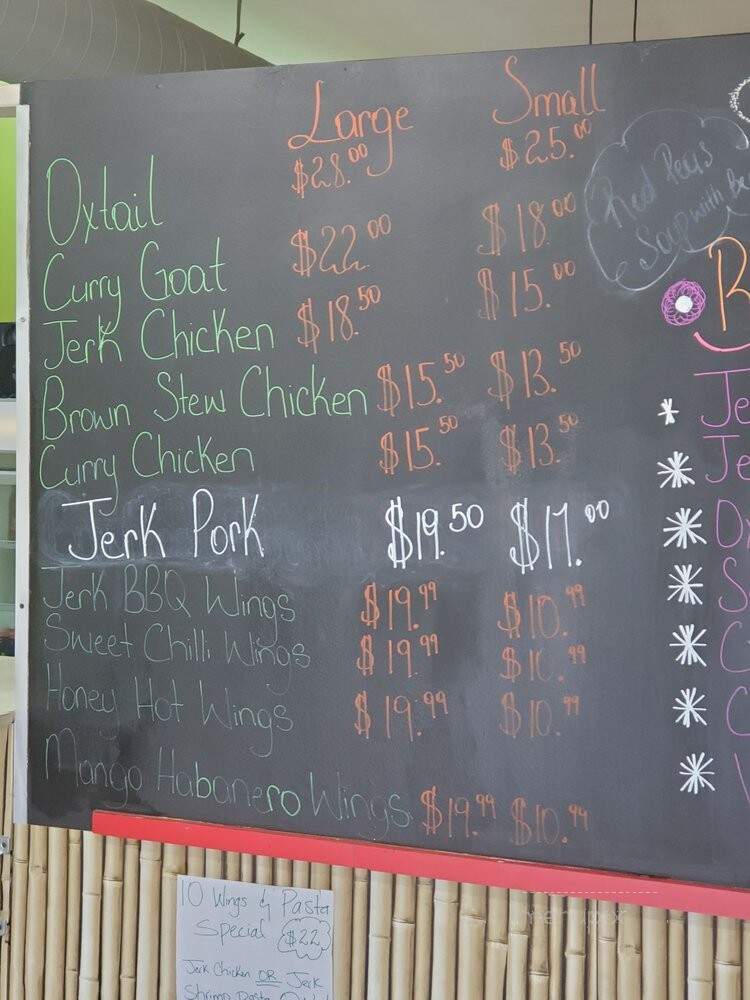 Large Small
Oxtail $28.00 $25.00
Curry Goat $22.00 $18.00
Jerk Chicken $18.50 $15.00
Brown Stew Chicken $15.50 $13.50
Curry Chicken $15.50 $13.50
Jerk Pork $19.50 $17.00
Jerk BBQ Wings $19.99 $10.99
Sweet Chilli Wings $19.99 $10.99
Honey Hot Wings $19.99 $10.99
Mango Habanero Wings $19.99 $10.99
Red Peas
Soup with
B
Je
Je
O
S
C
C
10 Wings & Pasta
Special $22
Jerk Chicken OR Jerk
Shrimp Pasta